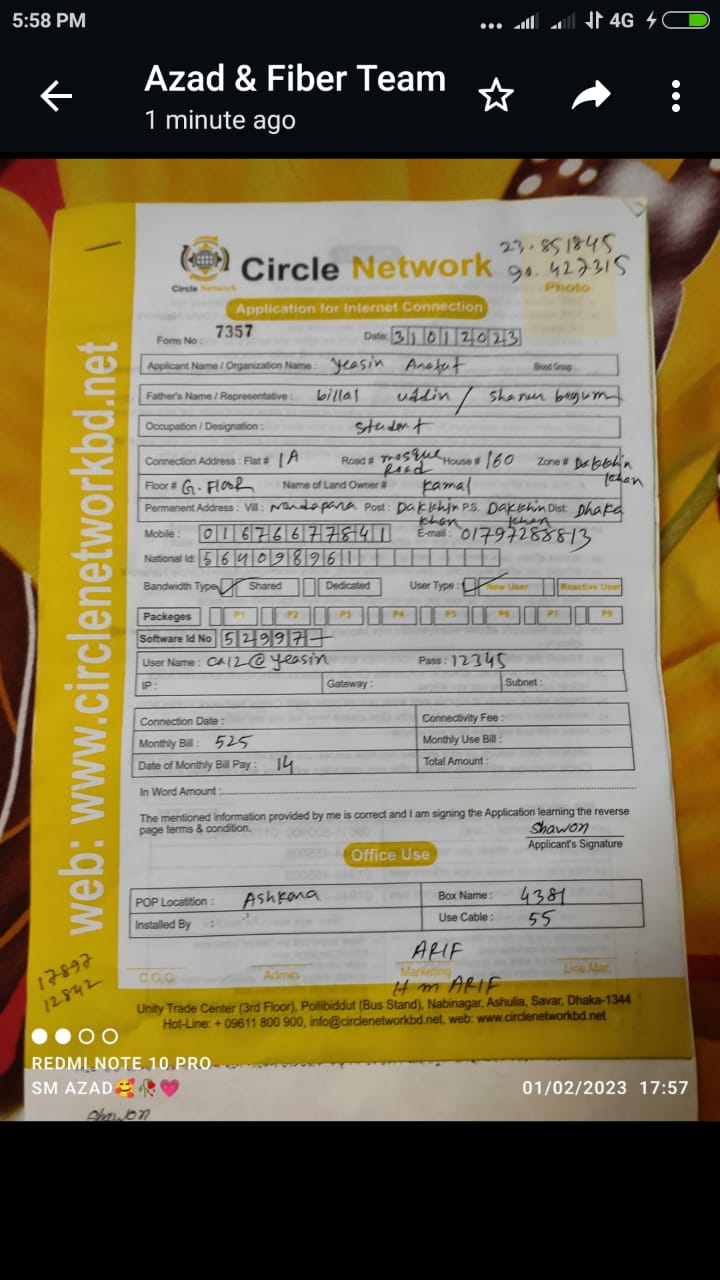 5:58 PM
4G
Azad & Fiber Team
1 minute ago
23.851845
90.427315
Circle Network
Circle Network
Photo
Application for Internet Connection
Form No : 7357 Date: 31012023
Applicant Name / Organization Name : Yeasin Arafat Blood Group
Father's Name / Representative : billal uddin / Sharun begum
Occupation / Designation : Student
Connection Address : Flat # 1A Road # mosque Road House # 160 Zone # Dakkhin khan
Floor # G. Floor Name of Land Owner # Kamal
Permanent Address : Vill : Nandapara Post : Dakkhin khan P.S. Dakkhin khan Dist: Dhaka
Mobile : 01676677841 E-mail : 01797288813
National Id: 564098961
Bandwidth Type Shared Dedicated User Type : New User Reactive User
Packeges P1 P2 P3 P4 P5 P6 P7 P8
Software Id No 52997
User Name : CA12@yeasin Pass : 12345
IP : Gateway : Subnet :
Connection Date : Connectivity Fee :
Monthly Bill : 525 Monthly Use Bill :
Date of Monthly Bill Pay : 14 Total Amount :
In Word Amount :
The mentioned information provided by me is correct and I am signing the Application learning the reverse
page terms & condition.
Shawon
Applicant's Signature
Office Use
POP Locatition : Ashkona Box Name : 4381
Installed By : Use Cable : 55
ARIF
C.O.O Admin Marketing Line Man
H m ARIF
17897
12842
Unity Trade Center (3rd Floor), Pollibiddut (Bus Stand), Nabinagar, Ashulia, Savar, Dhaka-1344
Hot-Line: + 09611 800 900, info@circlenetworkbd.net, web: www.circlenetworkbd.net
web: www.circlenetworkbd.net
REDMI NOTE 10 PRO
SM AZAD🥰🥀💗 01/02/2023 17:57
Shawon